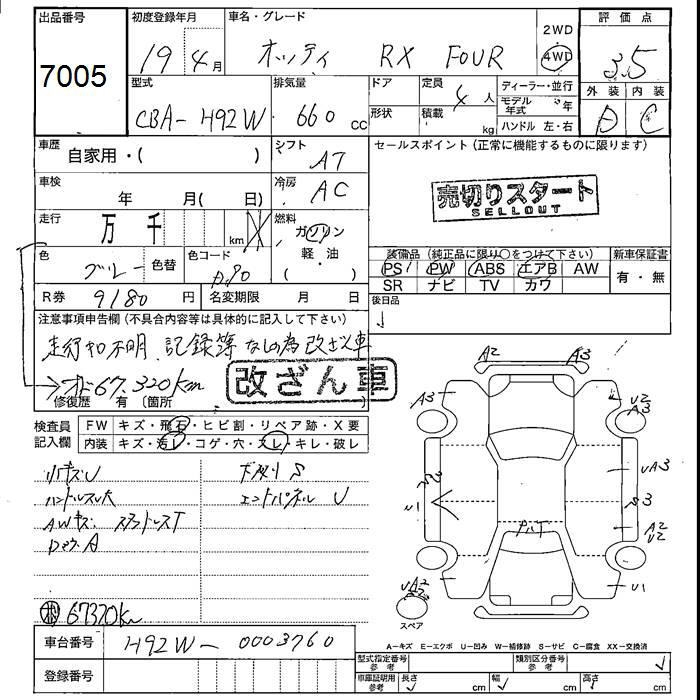 出品番号
7005
初度登録年月
19 4月
車名・グレード
オッティ RX FOUR
2WD
4WD
評価点
3.5
外装 内装
D C
型式
CBA-H92W
排気量
660 cc
ドア
形状
定員
4人
積載
kg
ディーラー・並行
モデル年式 年
ハンドル 左・右
車歴
自家用・( )
シフト
AT
セールスポイント (正常に機能するものに限ります)
売切りスタート
SELLOUT
車検
年 月( 日)
冷房
AC
走行
万 千 km
燃料
ガソリン
軽・油
( )
色
ブルー
色替
色コード
R券 9180 円
名変期限 月 日
装備品 (純正品に限り○をつけて下さい)
PS PW ABS エアB AW
SR ナビ TV カワ
新車保証書
有・無
後日品
注意事項申告欄 (不具合内容等は具体的に記入して下さい)
走行キロ不明 記録等なしの為改ざん車
67.320km
改ざん車
修復歴 有 〔箇所 〕
検査員記入欄
FW キズ・飛石・ヒビ割・リペア跡・X要
内装 キズ・汚レ・コゲ・穴・スレ・キレ・破レ
リバキズU
下廻りS
ハンドルスレ大
エンドパネル U
AWキズ
67320km
A2 A3
A3
U2
A3
UA3
S3
A2
U2
U1
UA2
スペア
A-キズ E-エクボ U-凹み W-補修跡 S-サビ C-腐食 XX-交換済
車台番号
H92W-0003760
登録番号
型式指定番号 参考
類別区分番号 参考
車庫証明用 参考
長さ cm
幅 cm
高さ cm